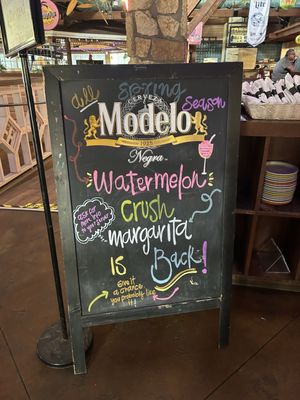 all Spring Season
CERVEZA
Modelo
1925
Negra
Watermelon
Crush
margarita
IS Back!
ask for
Give it
a chance
you probably like
it
Lite